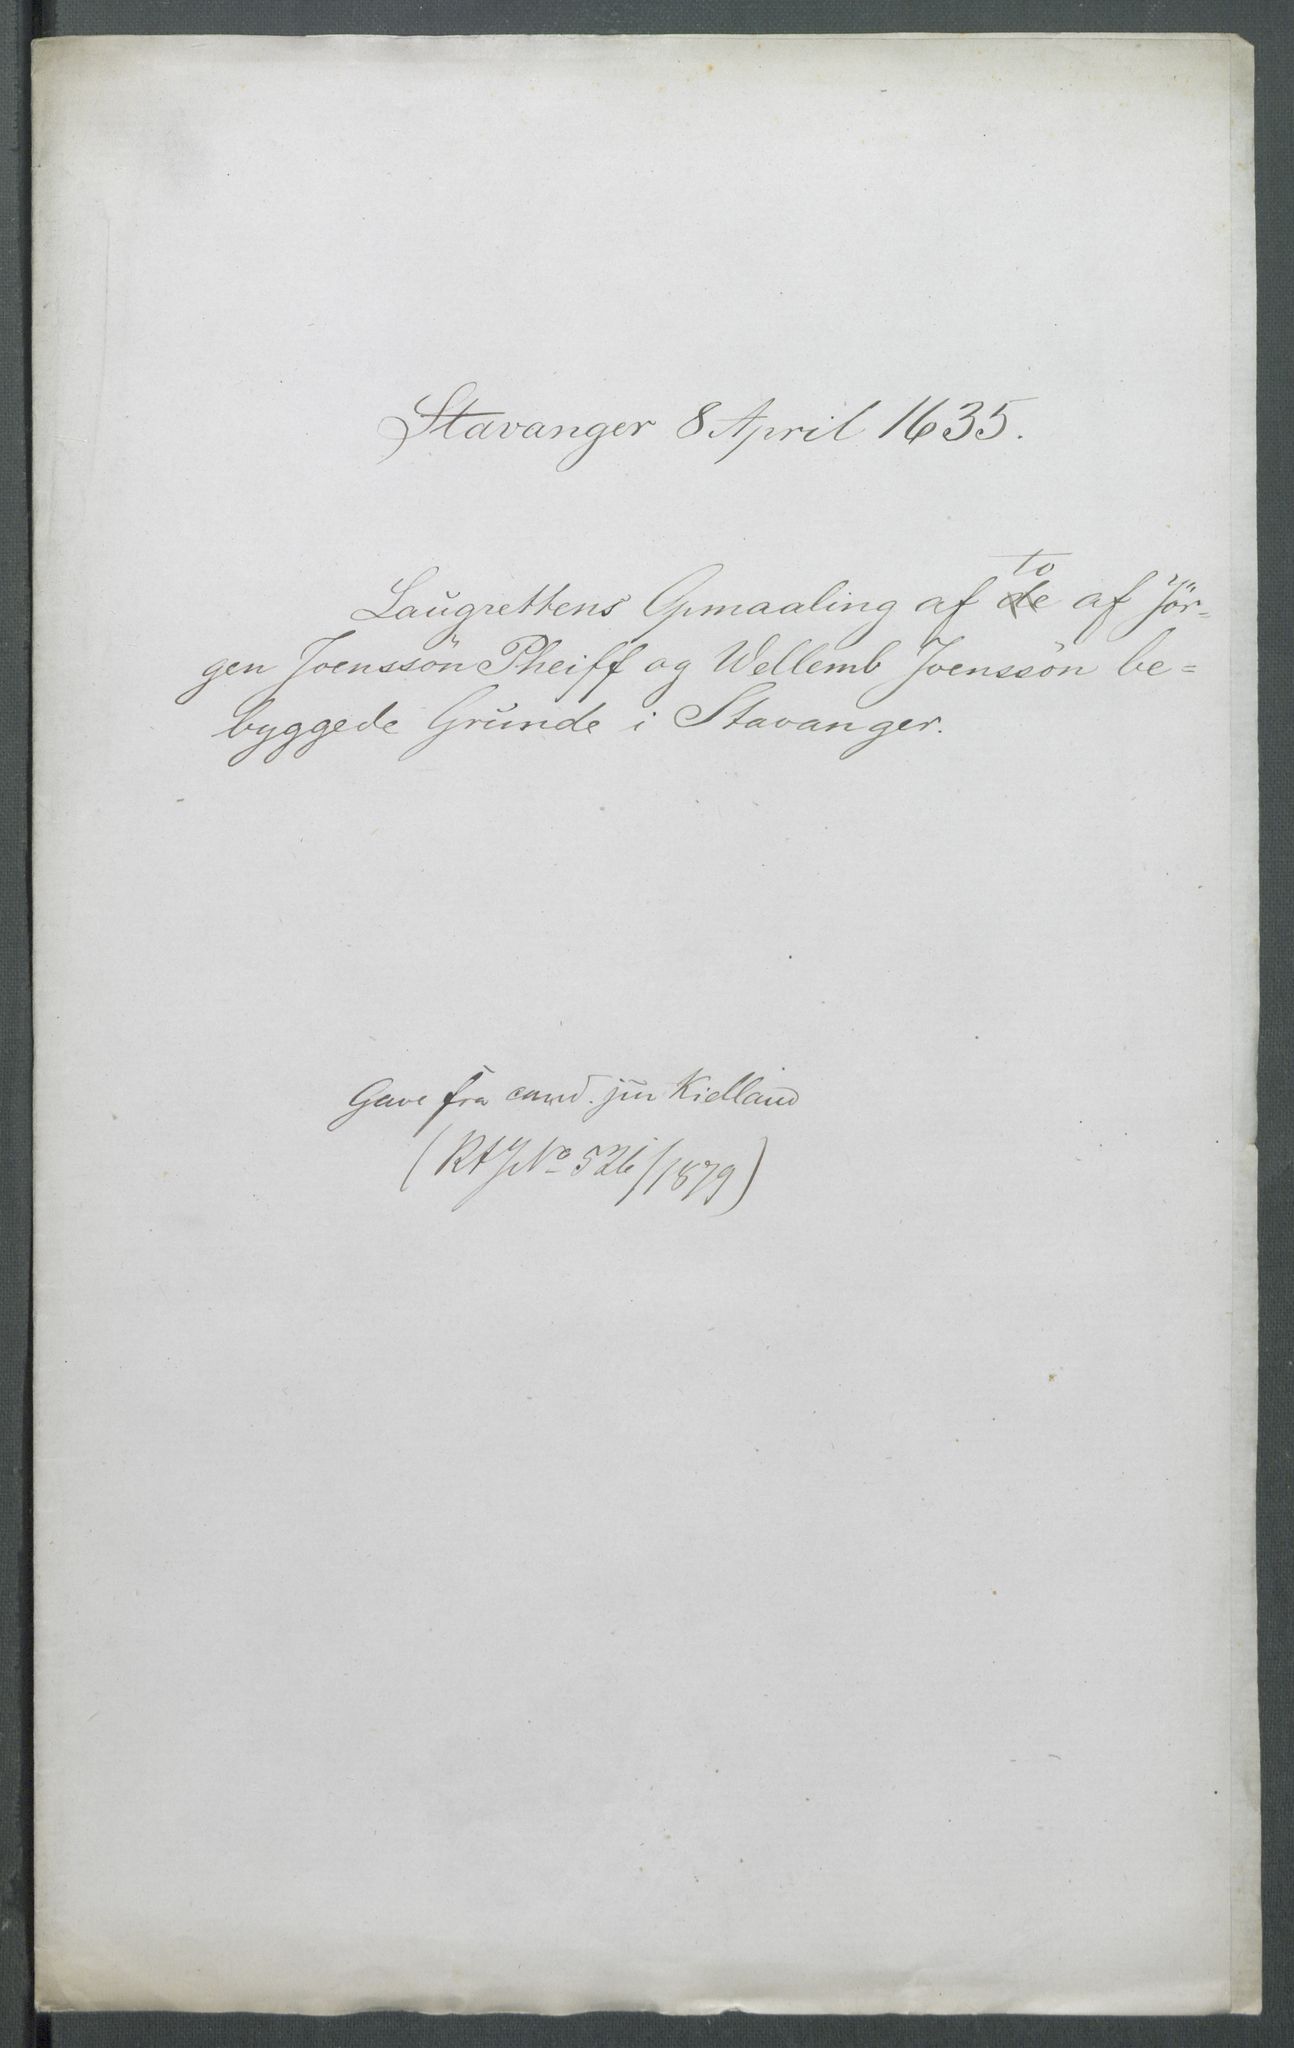 Stavanger 8 April 1635.
Laugrettens Opmaaling af to af Jör-
gen Joenssön Pheiff og Wellemb Joenssön be-
byggede Grunde i Stavanger.
Gave fra cand. jur Kielland
(RAJNo 526/1879)